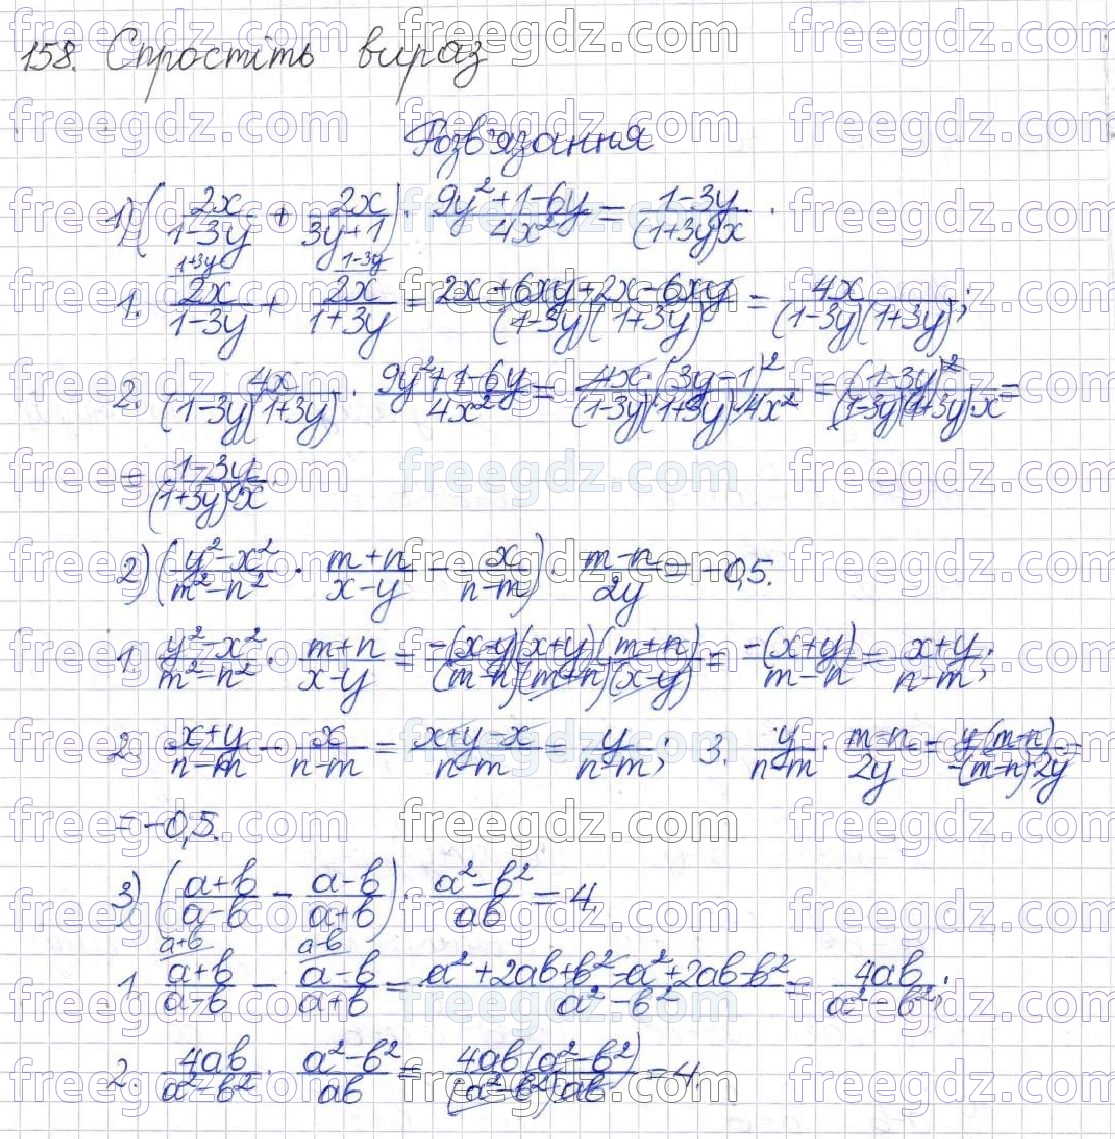 158. Спростіть вираз
Розв'язання
1) (2x/(1-3y) + 2x/(3y+1)) · (9y²+1-6y)/(4x²) = (1-3y)/((1+3y)x).
1. 2x/(1-3y) (1+3y) + 2x/(1+3y) (1-3y) = (2x+6xy+2x-6xy)/((1-3y)(1+3y)) = 4x/((1-3y)(1+3y));
2. 4x/((1-3y)(1+3y)) · (9y²+1-6y)/(4x²) = (4x·(3y-1)²)/((1-3y)(1+3y)·4x²) = (1-3y)²/((1-3y)(1+3y)·x) =
= (1-3y)/((1+3y)·x).
2) ((y²-x²)/(m²-n²) · (m+n)/(x-y) - x/(n-m)) · (m-n)/(2y) = -0,5.
1. (y²-x²)/(m²-n²) · (m+n)/(x-y) = (-(x-y)(x+y)(m+n))/((m-n)(m+n)(x-y)) = (-(x+y))/(m-n) = (x+y)/(n-m);
2. (x+y)/(n-m) - x/(n-m) = (x+y-x)/(n-m) = y/(n-m); 3. y/(n-m) · (m-n)/(2y) = (y(m-n))/(-(m-n)·2y) =
= -0,5.
3) ((a+b)/(a-b) - (a-b)/(a+b)) · (a²-b²)/(ab) = 4.
1. (a+b)/(a-b) (a+b) - (a-b)/(a+b) (a-b) = (a²+2ab+b²-a²+2ab-b²)/(a²-b²) = 4ab/(a²-b²);
2. 4ab/(a²-b²) · (a²-b²)/(ab) = (4ab(a²-b²))/((a²-b²)ab) = 4.
freegdz.com